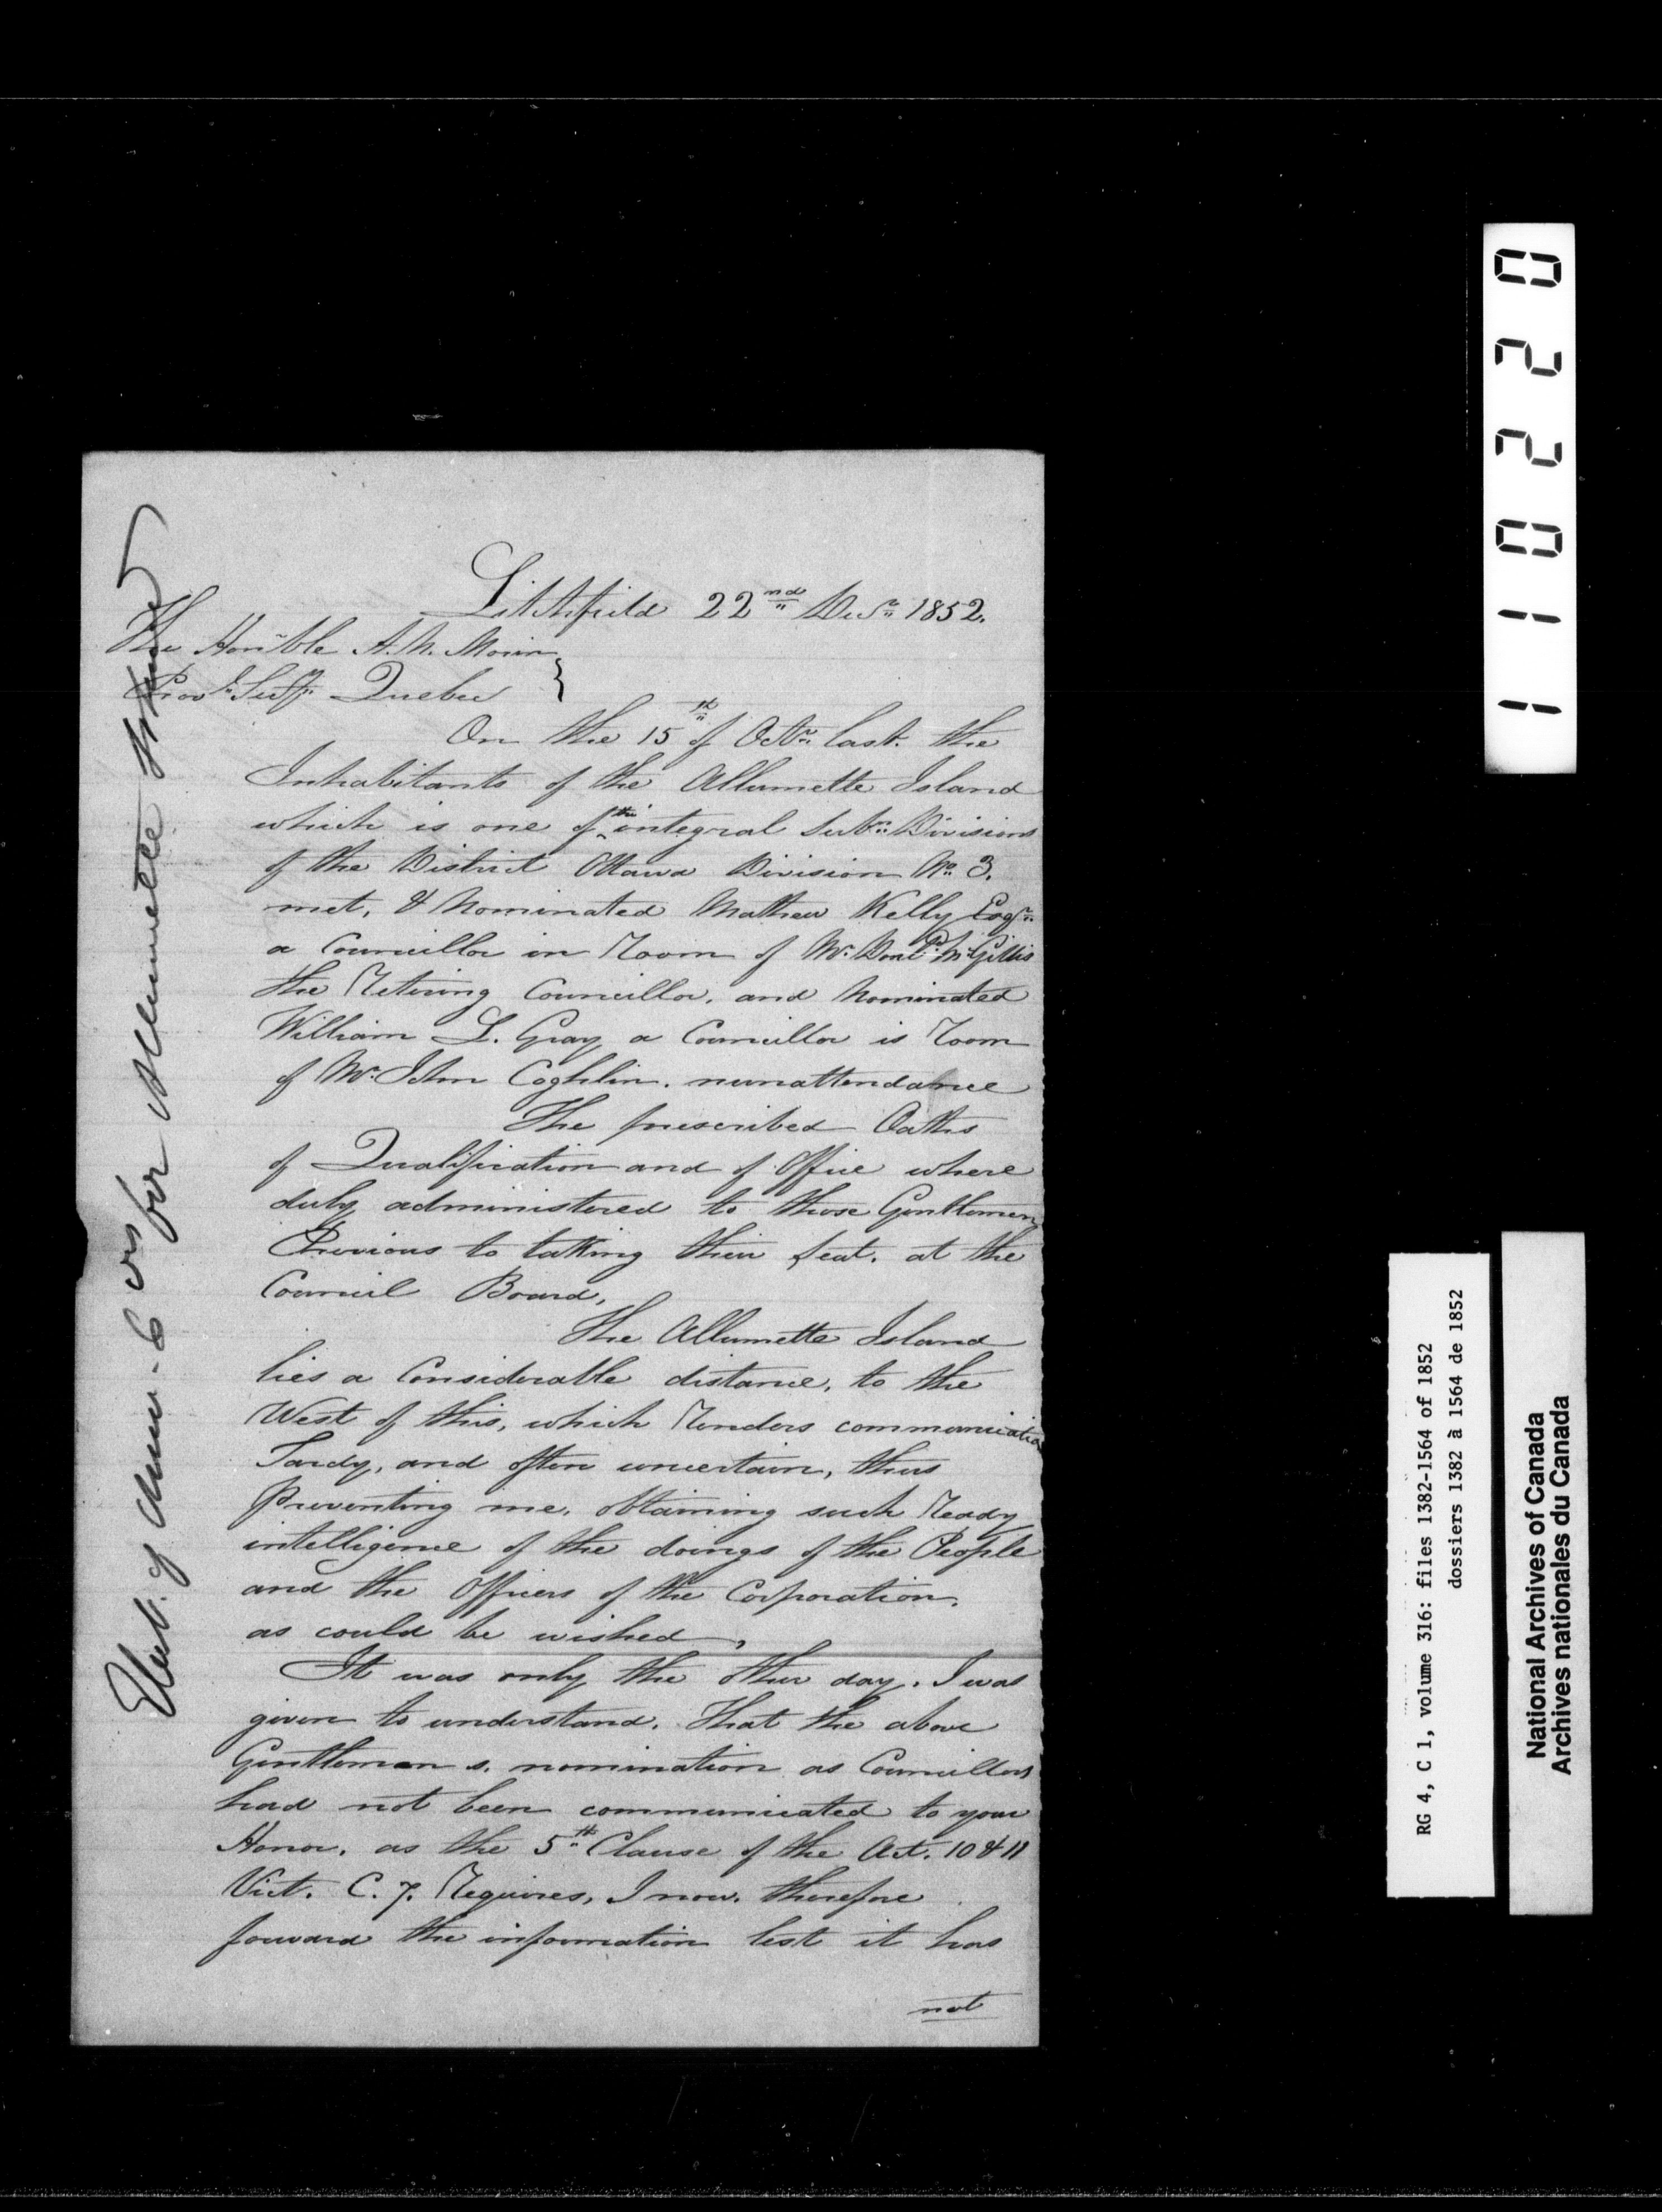 Litchfield 22nd Decr 1852.
The Hon'ble A. N. Morin
Provl Secy Quebec }
On the 15th of Octr last. the
Inhabitants of the Allumette Island
which is one of the integral Subn Divisions
of the District Ottawa Division No 3.
met, & Nominated Mathew Kelly Esqr
a Councillor in Room of Mr Donld McGillis
the Retiring Councillor, and Nominated
William L. Gray a Councillor is Room
of Mr John Coghlin. nunattendance
The prescribed Oaths
of Qualification and of Office where
duly administered to those Gentlemen
Previous to tatking their seat. at the
Council Board,
The Allumette Island
lies a Considerable distance, to the
West of this, which Renders communication
Tardy, and often uncertain, thus
Preventing me, obtaining such Ready
intelligence of the doings of the People
and the Officers of the Corporation,
as could be wished,
It was only the other day. I was
given to understand. That the above
Gentleman s. nomination as Councillors
had not been communicated to your
Honor, as the 5th Clause of the Act. 10 & 11
Vict. C. 7. Requires, I now. therefore
forward the information lest it has
not
Elect. of Coun-6 ors for Allumette Island
110220
RG 4, C 1, volume 316: files 1382-1564 of 1852
dossiers 1382 à 1564 de 1852
National Archives of Canada
Archives nationales du Canada